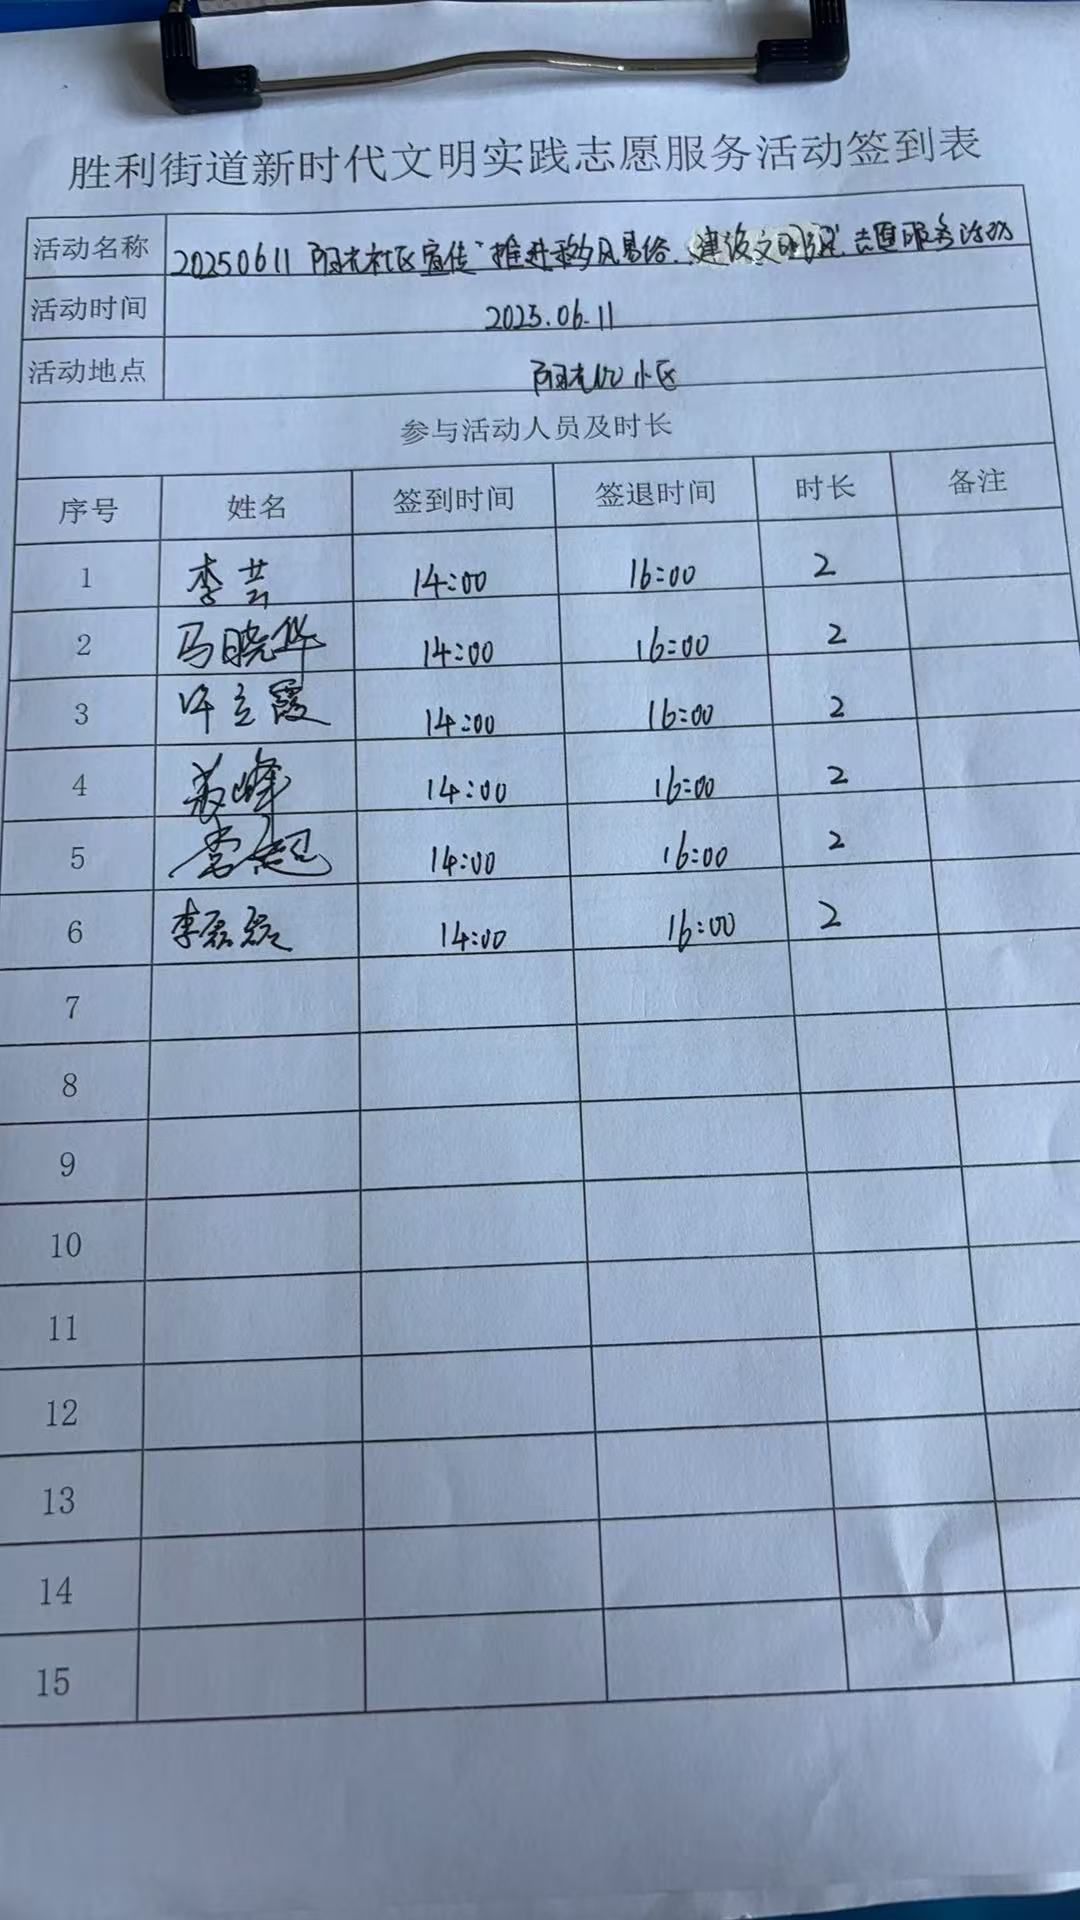 胜利街道新时代文明实践志愿服务活动签到表
活动名称 20250611 阳光社区宣传"推进移风易俗.建设文明 志愿服务活动
活动时间 2025.06.11
活动地点 阳光 小区
参与活动人员及时长
序号 姓名 签到时间 签退时间 时长 备注
1 李芸 14:00 16:00 2
2 马晓华 14:00 16:00 2
3 许立霞 14:00 16:00 2
4 14:00 16:00 2
5 14:00 16:00 2
6 李磊磊 14:00 16:00 2
7
8
9
10
11
12
13
14
15